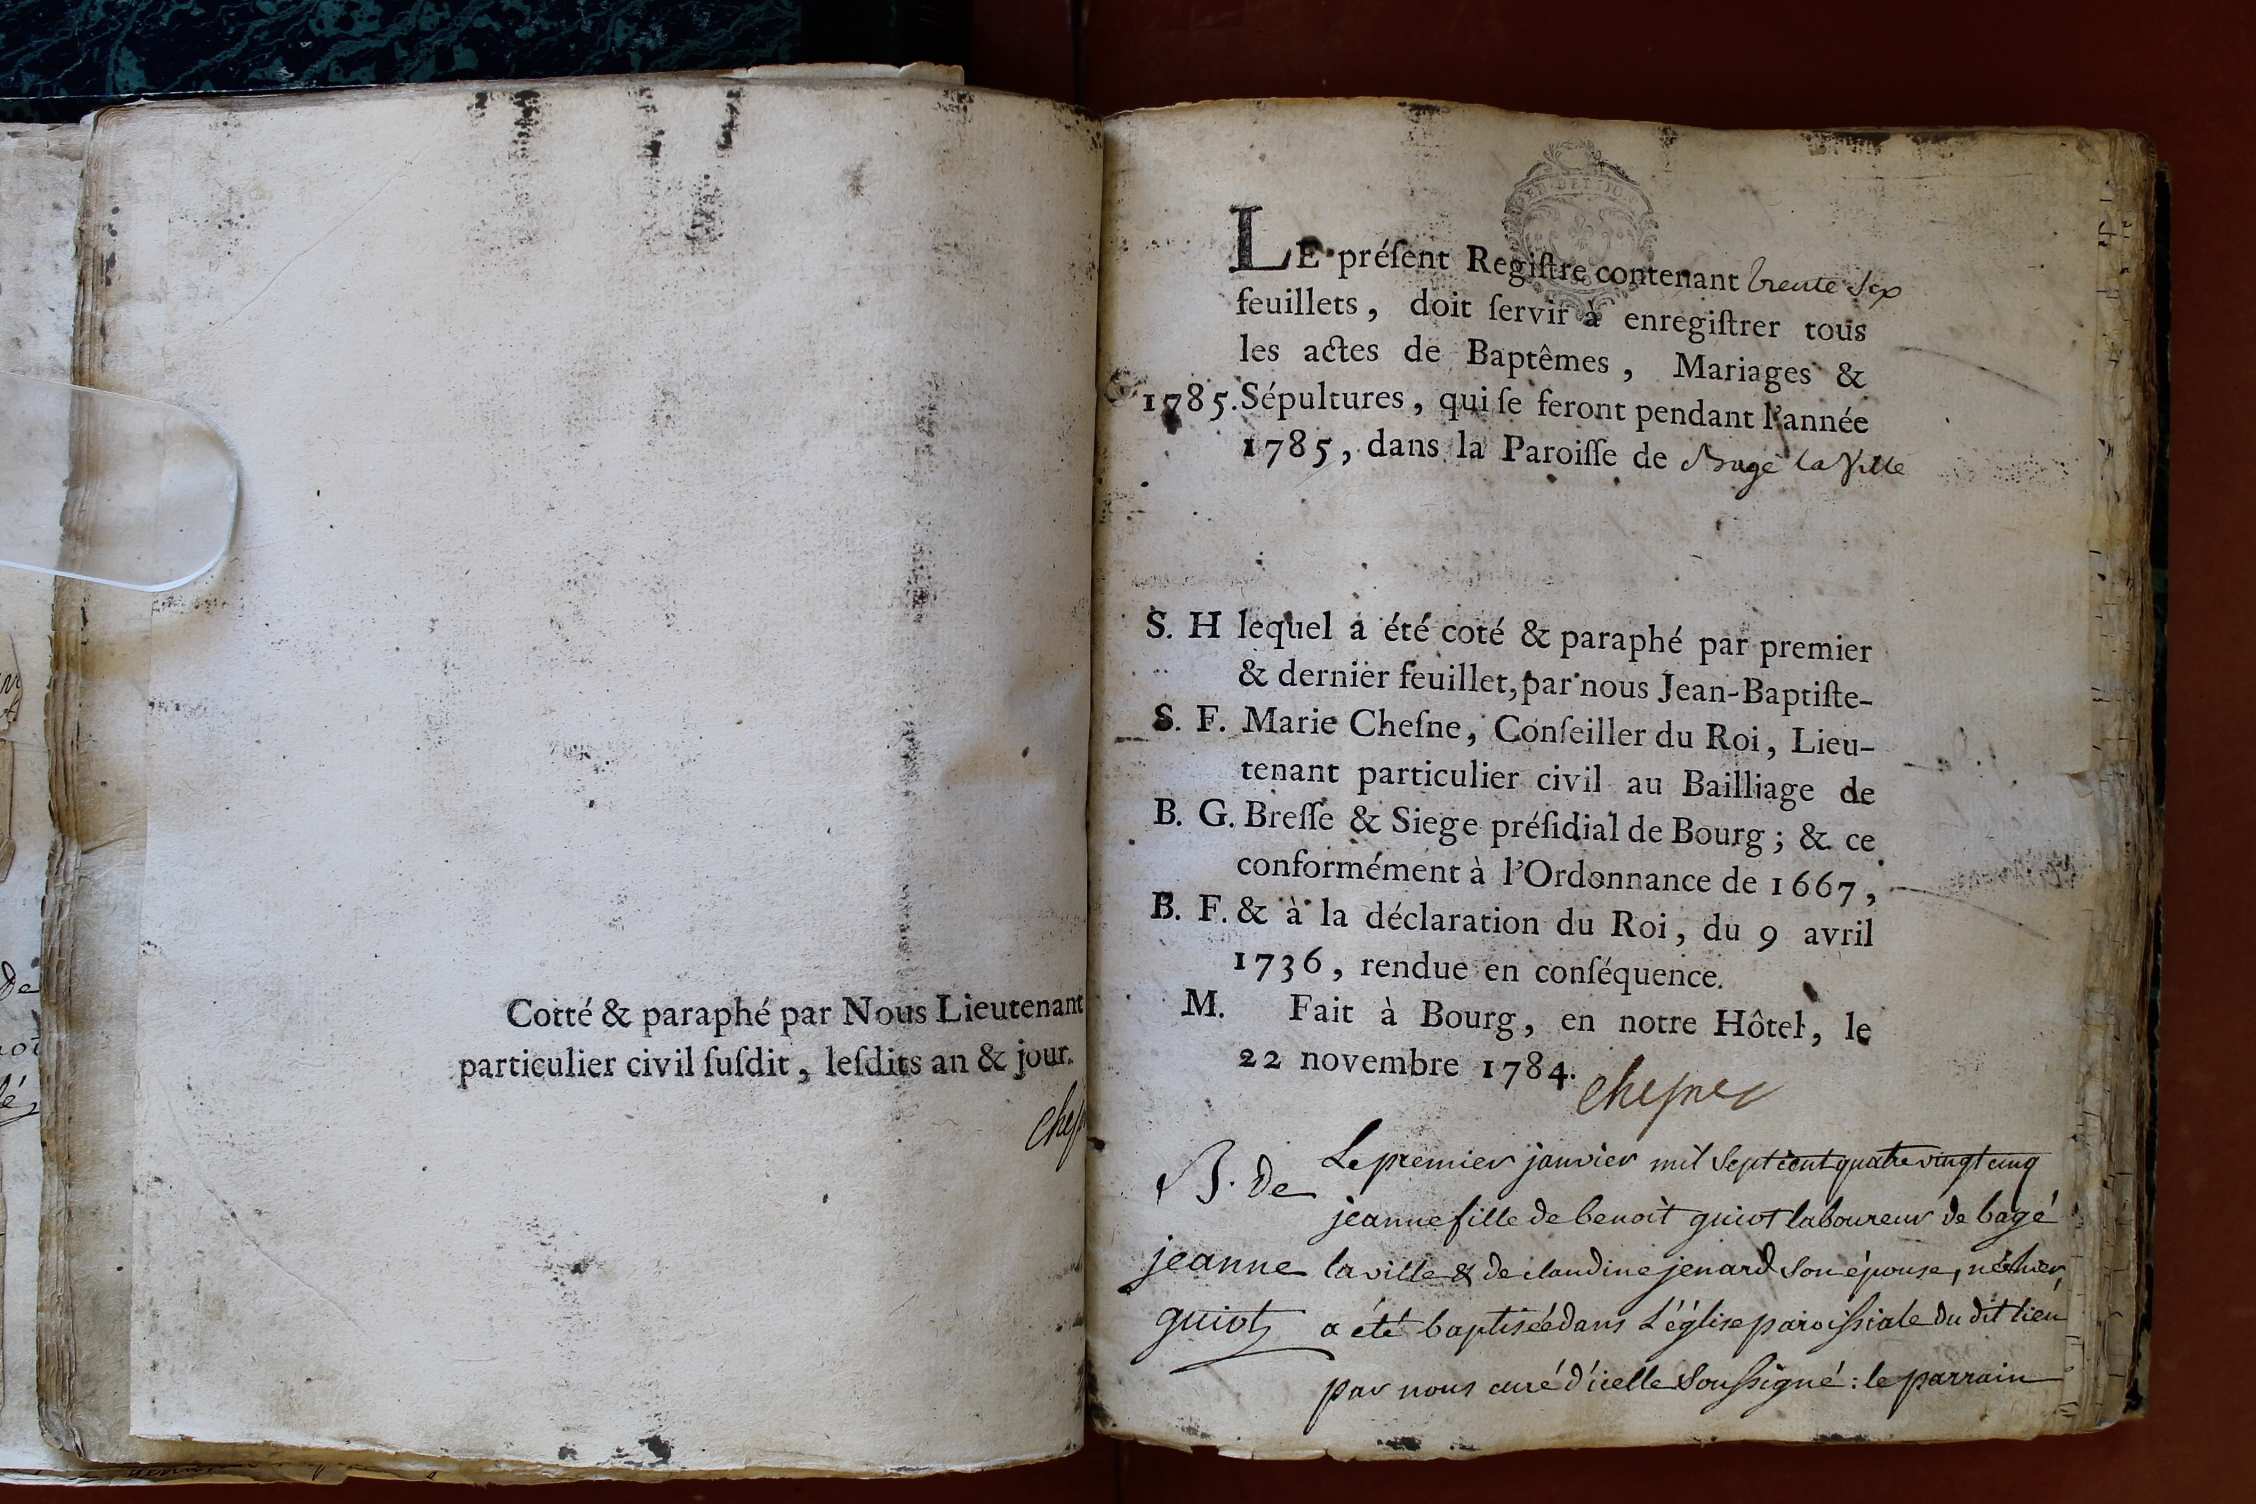 Cotté & paraphé par Nous Lieutenant
particulier civil ſuſdit, leſdits an & jour.
LE préſent Regiſtre contenant trente six
feuillets, doit ſervir à enregiſtrer tous
les actes de Baptêmes, Mariages &
1785. Sépultures, qui ſe feront pendant l'année
1785, dans la Paroiſſe de Bagé la Ville
S. H lequel a été coté & paraphé par premier
& dernier feuillet, par nous Jean-Baptiſte-
S. F. Marie Cheſne, Conſeiller du Roi, Lieu-
tenant particulier civil au Bailliage de
B. G. Breſſe & Siege préſidial de Bourg ; & ce
conformément à l'Ordonnance de 1667,
B. F. & à la déclaration du Roi, du 9 avril
1736, rendue en conſéquence.
M. Fait à Bourg, en notre Hôtel, le
22 novembre 1784.
chesne
Le premier janvier mil sept cent quatre vingt cinq
B. de
jeanne fille de benoit guiot laboureur de bagé
jeanne la ville & de claudine jenard son épouse, née hier,
guiot a été baptisée dans l'église paroissiale du dit lieu
par nous curé d'icelle soussigné : le parrain